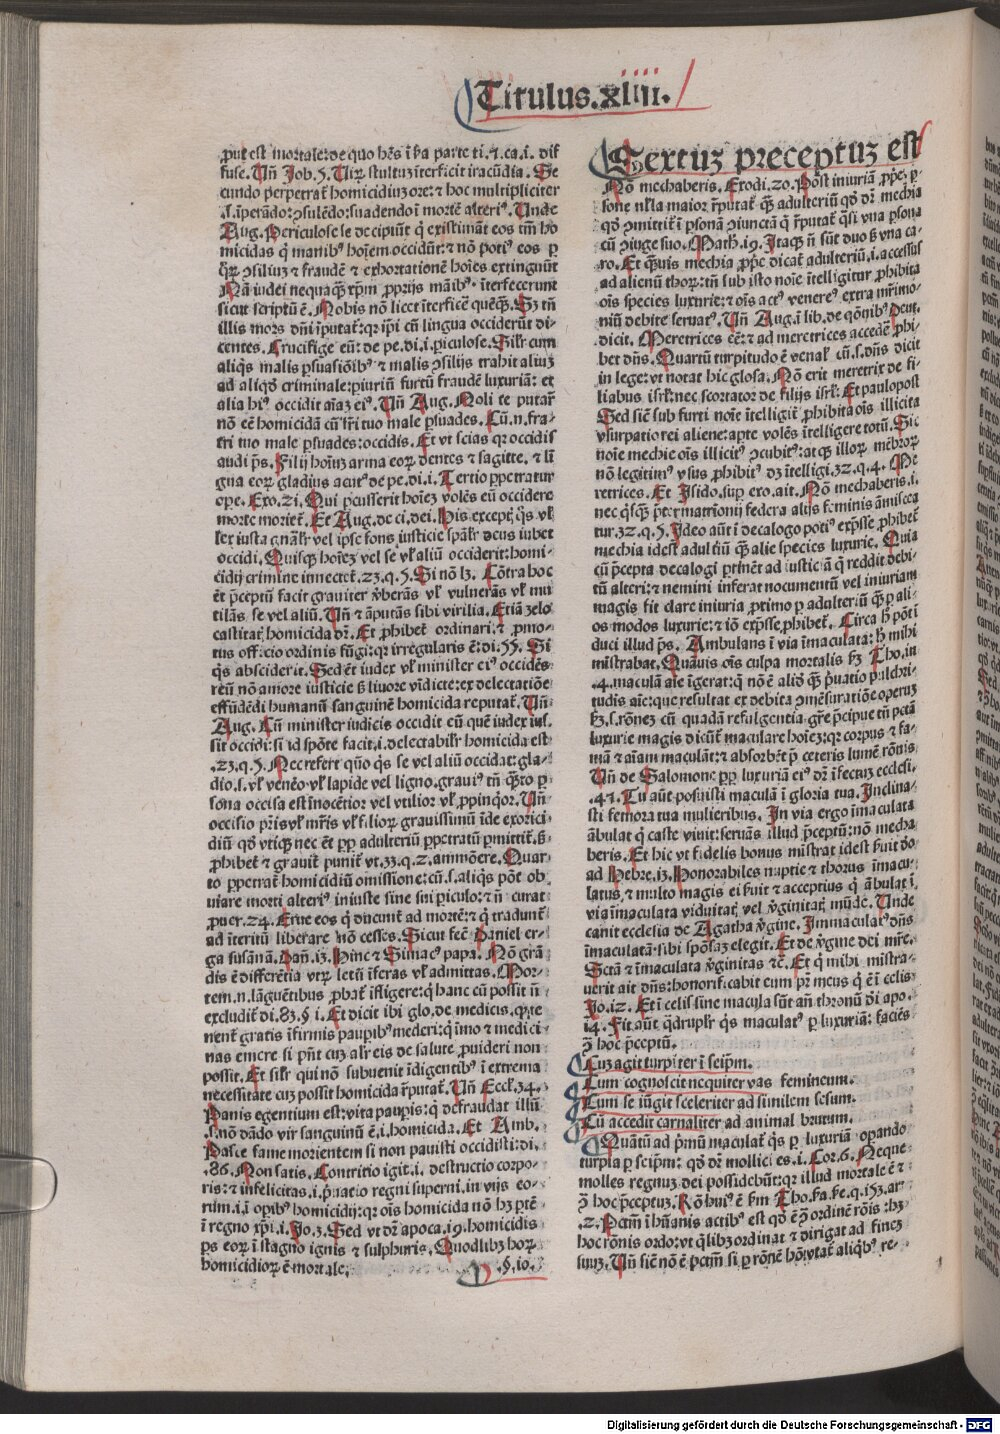 Titulus.xliiii.
ꝓut est mortale: de quo hēs ī ħa parte ti.⁊.ca.i. dif
fuse. Uñ Job.5. Uiꝝ stultuz īterficit iracūdia. Se
cundo perpetrat̄ homicidiuz ore: ⁊ hoc multipliciter
.s. īperādo: ꝯsulēdo: suadendo ī mortē alteriꝰ. Unde
Aug. Periculose se decipiūt q̄ existimāt eos tm̄ ho
micidas q̄ manibꝰ hoīem occidūt: ⁊ nō potiꝰ eos ꝑ
q̄ꝝ ꝯsiliuz ⁊ fraudē ⁊ exhortationē hoīes extinguūt
Nā iudei nequaq̄ꝫ xp̄m ꝓprijs māibꝰ. īterfecerunt
sicut scriptū ē. Nobis nō licet īterficē quēq̄ꝫ. Sꝫ tn̄
illis mors dn̄i īputat̄: qꝛ ip̄i cū lingua occiderūt di
centes. Crucifige eū: de pe.di.i. ꝑiculose. Silꝉ cum
aliq̄s malis ꝑsuasiōibꝰ ⁊ malis ꝯsilijs trahit aliuz
ad aliqd̓ criminale: ꝑiuriū furtū fraudē luxuriā: et
alia hiꝰ occidit aīaz eiꝰ. Uñ Aug. Noli te putar̄
nō eē homicidā cū fr̄i tuo male ꝑsuades. Cū.n.fra-
tri tuo male ꝑsuades: occidis. Et vt scias qꝛ occidis
audi p̄s. Filij hoīuz arma eoꝝ dentes ⁊ sagitte. ⁊ lī
gua eoꝝ gladius acutꝰ de pe.di.i. Tertio ꝑpetratur
oꝑe. Exo.21. Qui ꝑcusserit hoīez volēs eū occidere
morte moriet̄. Et Aug. de ci.dei. His exceptꝭ q̄s vꝉ
lex iusta gn̄alꝉ vel ip̄se fons iusticie sp̄alꝉ deus iubet
occidi. Quisq̄ꝫ hoīez vel se vꝉ aliū occiderit: homi-
cidij crimine innectet̄. 23.q.5. Si nō lꝫ. Cōtra hoc
ēt p̄ceptū facit grauiter v̓berās vꝉ vulnerās vꝉ mu
tilās se vel aliū. Uñ ⁊ āputās sibi virilia. Etiā zelo
castitatꝭ homicida dꝛ̄. Et ꝓhibet̄ ordinari. ⁊ ꝓmo-
tus officio ordinis fūgi: qꝛ irregularis ē: di.55. Si
q̄s absciderit. Sed ēt iudex vꝉ minister eiꝰ occidēs
reū nō amore iusticie ß liuore vīdicte: ex delectatiōe
effūdēdi humanū sanguinē homicida reputat̄. Uñ
Aug. Cū minister iudicis occidit eū quē iudex iuſ-
sit occidi: si id spōte facit. i. delectabilꝉ homicida est
.23.q.5. Nec refert quō q̄s se vel aliū occidat: gla-
dio.s.vꝉ venēo vꝉ lapide vel ligno. grauiꝰ tn̄ q̄ꝫto ꝑ
sona occisa est īnocētior vel vtilior vꝉ ꝓpinqor. Uñ
occisio pr̄is vꝉ mr̄is vꝉ filioꝝ grauissimū īde exorici-
diū qd̓ vtiqꝫ nec ēt ꝓp adulteriū ꝑpetratū ꝑmittit̄. ß
ꝓhibet̄ ⁊ grauit̄ punit̄ vt.33.q.2. ammōere. Quar
to ꝑpetrat̄ homicidiū omissione: cū.s.aliq̄s pōt ob
uiare morti alteriꝰ iniuste sine sui ꝑiculo: ⁊ n̄ curat
ꝓuer.24. Erue eos q̄ ducunt̄ ad mortē: ⁊ q̄ tradunt̄
ad īteritū liberare nō cesses. Sicut fec̄ Daniel er-
ga susānā. Dañ.13. Hinc ⁊ Simacꝰ papa. Nō grā
dis ē differētia vtꝝ letū īferas vꝉ admittas. Mor-
tem.n.lāguētibus ꝓbat̄ īfligere: q̄ hanc cū possit n̄
excludit̄ di.83. § i. Et dicit ibi glo. de medicis. q̓ te
nent̄ gratis īfirmis paupībꝰ mederi: q̄ īmo ⁊ medici-
nas emere si p̄nt cuz al̓r eis de salute ꝓuideri non
possit. Et silꝉ qui nō subuenit īdigentibꝰ ī extrema
necessitate cuz possit homicida r̄putat̄. Uñ Eccl̓.34.
Panis egentium est: vita paupīs: q̄ defraudat illū
.s.nō dādo vir sanguinū ē.i.homicida. Et Amb.
Pasce fame morientem si non pauisti occidisti: di.
.86. Non satis. Contritio igit̄.i.destructio corpo-
ris: ⁊ infelicitas.i.p̄uatio regni superni. in vijs eo-
rum.i.ī opībꝰ homicidij: qꝛ oīs homicida nō hꝫ ptē
ī regno xp̄i.i.Jo.3. Sed vt dꝛ̄ apoca.19. homicidis
ps eoꝝ ī stagno ignis ⁊ sulphuris. Quodlibꝫ hoꝝ
homicidioꝝ ē mortale.
.§.10.
Sextuz preceptuz est
Nō mechaberis. Exodi.20. Post iniuriā ꝓpe. ꝑ-
sone nulla maior r̄putat̄ q̄ꝫ adulteriū qd̓ dꝛ̄ mechia
qd̓ ꝯmittit̄ ī psonā ꝯiunctā q̄ r̄putat̄ q̄si vna ꝑsona
cū ꝯiuge suo. Math̄.19. Itaqꝫ n̄ sūt duo ß vna ca-
ro. Et q̄ꝫuis mechia ꝓp̄e dicat̄ adulteriū.i.accessus
ad alienū thoꝝ: tn̄ sub isto noīe ītelligitur ꝓhibita
oīs species luxurie: ⁊ oīs actꝰ venereꝰ extra mr̄imo-
niū debite seruatꝰ. Uñ Aug. ī lib.de qōnibꝰ Deut.
dicit. Meretrices eē: ⁊ ad meretrices accedē ꝓhi-
bet dn̄s. Quartū turpitudo ē venaꝉ cū.s.dn̄s dicit
in lege: vt notat hic glosa. Nō erit meretrix de fi-
liabus isrꝉ: nec scortator de filijs isrꝉ. Et paulopost
Sed siē sub furti noīe ītelligit̄ ꝓhibita oīs illicita
vsurpatio rei aliene: apte volēs ītelligere totū. Sic
noīe mechie oīs illicitꝰ ꝯcubitꝰ: atqꝫ illoꝝ mēbroꝝ
nō legitimꝰ vsus ꝓhibitꝰ dꝫ ītelligi.32.q.4. Me
retrices. Et Isido. suꝑ exo. ait. Nō mechaberis.i.
nec q̄sq̄ꝫ p̄ter matrionij federa alijs feminis āmiscea
tur.32.q.5. Ideo aūt ī decalogo potiꝰ exp̄sse ꝓhibet̄
mechia idest adulteriū q̄ꝫ alie species luxurie. Quia
cū p̄cepta decalogi ꝑtinēt ad iusticiā q̄ reddit debi-
tū alteri: ⁊ nemini inferat nocumentū vel iniuriam
magis fit clare iniuria ꝓximo ꝑ adulteriū q̄ꝫ ꝑ ali-
os modos luxurie: ⁊ iō exp̄sse ꝓhibet̄. Circa ħ pōt ī
duci illud p̄s. Ambulans ī via īmaculata: ħ mihi
mīstrabat. Quāuis oīs culpa mortalis ẜꝫ Tho. in
.4. maculā aīe īgerat: q̄ nō ē aliō q̄ꝫ p̄uatio pulchri-
tudīs aīe: que resultat ex debita ꝯmēsuratiōe operuz
ẜꝫ.s.rōnez cū quadā refulgentia gr̄e p̄cipue tn̄ pctā
luxurie magis dicūt̄ maculare hoīez: qꝛ corpus ⁊ fa-
mā ⁊ aīam maculāt: ⁊ absorbēt p̄ ceteris lumē rōnis
Uñ de Salomone ꝓp luxuriā eiꝰ dꝛ̄ īfectuz ecclesi.
.47. Tu aūt posuisti maculā ī gloria tua. Inclina-
sti femora tua mulieribus. In via ergo īmaculata
ābulat q̄ caste viuit: seruās illud p̄ceptū: nō mecha
beris. Et hic vt fidelis bonus mīstrat idest ẜuit dō
ad Hebre.13. Honorabiles nuptie ⁊ thorus īmacu-
latus ⁊ multo magis ei ẜuit ⁊ acceptius q̄ ābulat ī
via īmaculata viduitatꝭ vel v̓ginitatꝭ mūde. Unde
canit ecclesia de Agatha v̓gine. Immaculatꝰ dn̄s
īmaculatā sibi spōsaz elegit. Et de v̓gine dei mr̄e.
Sctā ⁊ īmaculata v̓ginitas ⁊c̄. Et q̄ mihi mīstra-
uerit ait dn̄s: honorificabit eum pr̄ meus q̄ ē ī celis
Jo.12. Et ī celis sine macula sūt añ thronū d̓i apo.
14. Fit aūt q̄drupl̓r q̄s maculatꝰ ꝑ luxuriā: faciēs
ꝯ̄ hoc p̄ceptū.
Cuz agit turpiter ī seip̄m.
Cum cognoscit nequiter vas femineum.
Cum se iūgit sceleriter ad similem sexum.
Cū accedit carnaliter ad animal brutum.
Quātū ad p̄mū maculat̄ q̄s ꝑ luxuriā operando
turpia ꝑ seip̄m: qd̓ dꝛ̄ mollicies.i.Cor.6. Neque
molles regnuz dei possidebūt: qꝛ illud mortale ē ⁊
ꝯ̄ hoc p̄ceptuz. Rō huiꝰ ē ẜm Tho. ẜa ẜe.q.153.ar-
.2. Pctm̄ ī hūanis actibꝰ est qd̓ ē ꝯ̄ ordinē rōis: hꝫ
hoc rōnis ordo: vt q̄libꝫ ordinat̄ ⁊ dirigat̄ ad finez
suuz. Uñ siē nō ē pctm̄ si ꝑ rōnē hō vtat̄ aliq̄bꝰ re-
Digitalisierung gefördert durch die Deutsche Forschungsgemeinschaft - DFG